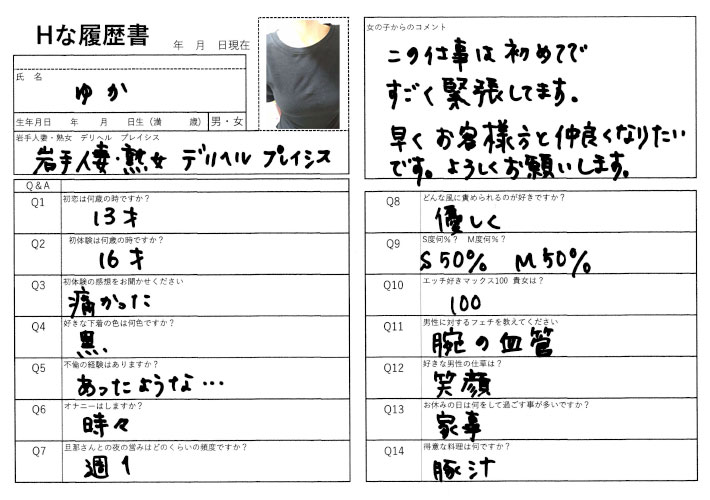 Hな履歴書
年 月 日現在
氏 名
ゆか
生年月日 年 月 日生（満 歳） 男・女
岩手人妻・熟女 デリヘル プレイシス
岩手人妻・熟女 デリヘル プレイシス
Q&A
Q1 初恋は何歳の時ですか？
13才
Q2 初体験は何歳の時ですか？
16才
Q3 初体験の感想をお聞かせください
痛かった
Q4 好きな下着の色は何色ですか？
黒.
Q5 不倫の経験はありますか？
あったような…
Q6 オナニーはしますか？
時々
Q7 旦那さんとの夜の営みはどのくらいの頻度ですか？
週1
女の子からのコメント
この仕事は初めてで
すごく緊張してます。
早くお客様方と仲良くなりたい
です。よろしくお願いします。
Q8 どんな風に責められるのが好きですか？
優しく
Q9 S度何%？ M度何%？
S50% M50%
Q10 エッチ好きマックス100 貴女は？
100
Q11 男性に対するフェチを教えてください
腕の血管
Q12 好きな男性の仕草は？
笑顔
Q13 お休みの日は何をして過ごす事が多いですか？
家事
Q14 得意な料理は何ですか？
豚汁